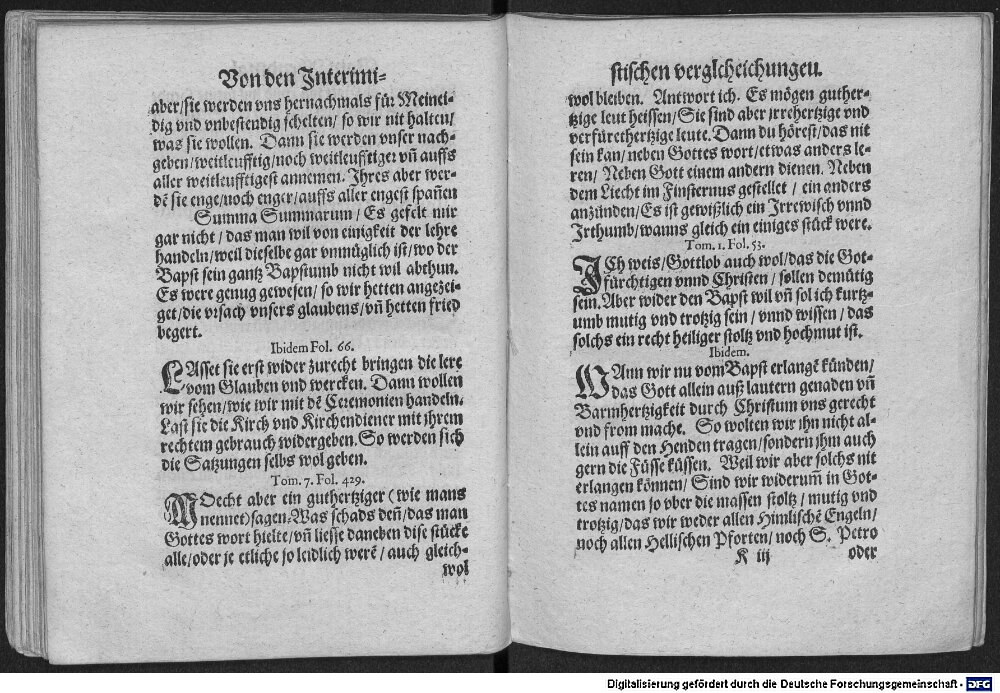 Von den Interimi-
aber/sie werden vns hernachmals für Meinei-
dig vnd vnbestendig schelten/ so wir nit halten/
was sie wöllen. Dann sie werden vnser nach-
geben/weitleufftig/noch weitleufftiger vñ auffs
aller weitleufftigest annemen. Ihres aber wer-
dẽ sie enge/noch enger/auffs aller engest spañen
Summa Summarum/ Es gefelt mir
gar nicht/ das man wil von einigkeit der lehre
handeln/weil dieselbe gar vnmüglich ist/wo der
Bapst sein gantz Bapstumb nicht wil abthun.
Es were genug gewesen/ so wir hetten angezei-
get/die vrsach vnsers glaubens/vñ hetten fried
begert.
Ibidem Fol. 66.
LAsset sie erst wider zurecht bringen die lere
vom Glauben vnd wercken. Dann wollen
wir sehen/wie wir mit dẽ Ceremonien handeln.
Last sie die Kirch vnd Kirchendiener mit jhrem
rechtem gebrauch widergeben. So werden sich
die Satzungen selbs wol geben.
Tom. 7. Fol. 429.
MOecht aber ein guthertziger (wie mans
nennet) sagen: Was schads deñ/das man
Gottes wort hielte/vñ liesse daneben dise stücke
alle/oder je etliche so leidlich werẽ/ auch gleich-
wol
stischen vergleheichungen.
wol bleiben. Antwort ich. Es mögen guther-
tzige leut heissen/Sie sind aber jrrehertzige vnd
verfürethertzige leute. Dann du hörest/das nit
sein kan/ neben Gottes wort/etwas anders le-
ren/ Neben Gott einem andern dienen. Neben
dem Liecht im Finsternus gestellet/ ein anders
anzünden/Es ist gewißlich ein Irrewisch vnnd
Irthumb/wanns gleich ein einiges stück were.
Tom. 1. Fol. 53.
ICh weis/Gottlob auch wol/das die Got-
fürchtigen vnnd Christen/ sollen demütig
sein. Aber wider den Bapst wil vñ sol ich kurtz-
umb mutig vnd trotzig sein/ vnnd wissen/ das
solchs ein recht heiliger stoltz vnd hochmut ist.
Ibidem.
WAnn wir nu vom Bapst erlangẽ künden/
das Gott allein auß lautern genaden vñ
Barmhertzigkeit durch Christum vns gerecht
vnd from mache. So wolten wir jhn nicht al-
lein auff den Henden tragen/sondern jhm auch
gern die Füsse küssen. Weil wir aber solchs nit
erlangen können/ Sind wir widerum̃ in Got-
tes namen so vber die massen stoltz/ mutig vnd
trotzig/das wir weder allen Himlischẽ Engeln/
noch allen Hellischen Pforten/ noch S. Petro
K iij oder
Digitalisierung gefördert durch die Deutsche Forschungsgemeinschaft - DFG